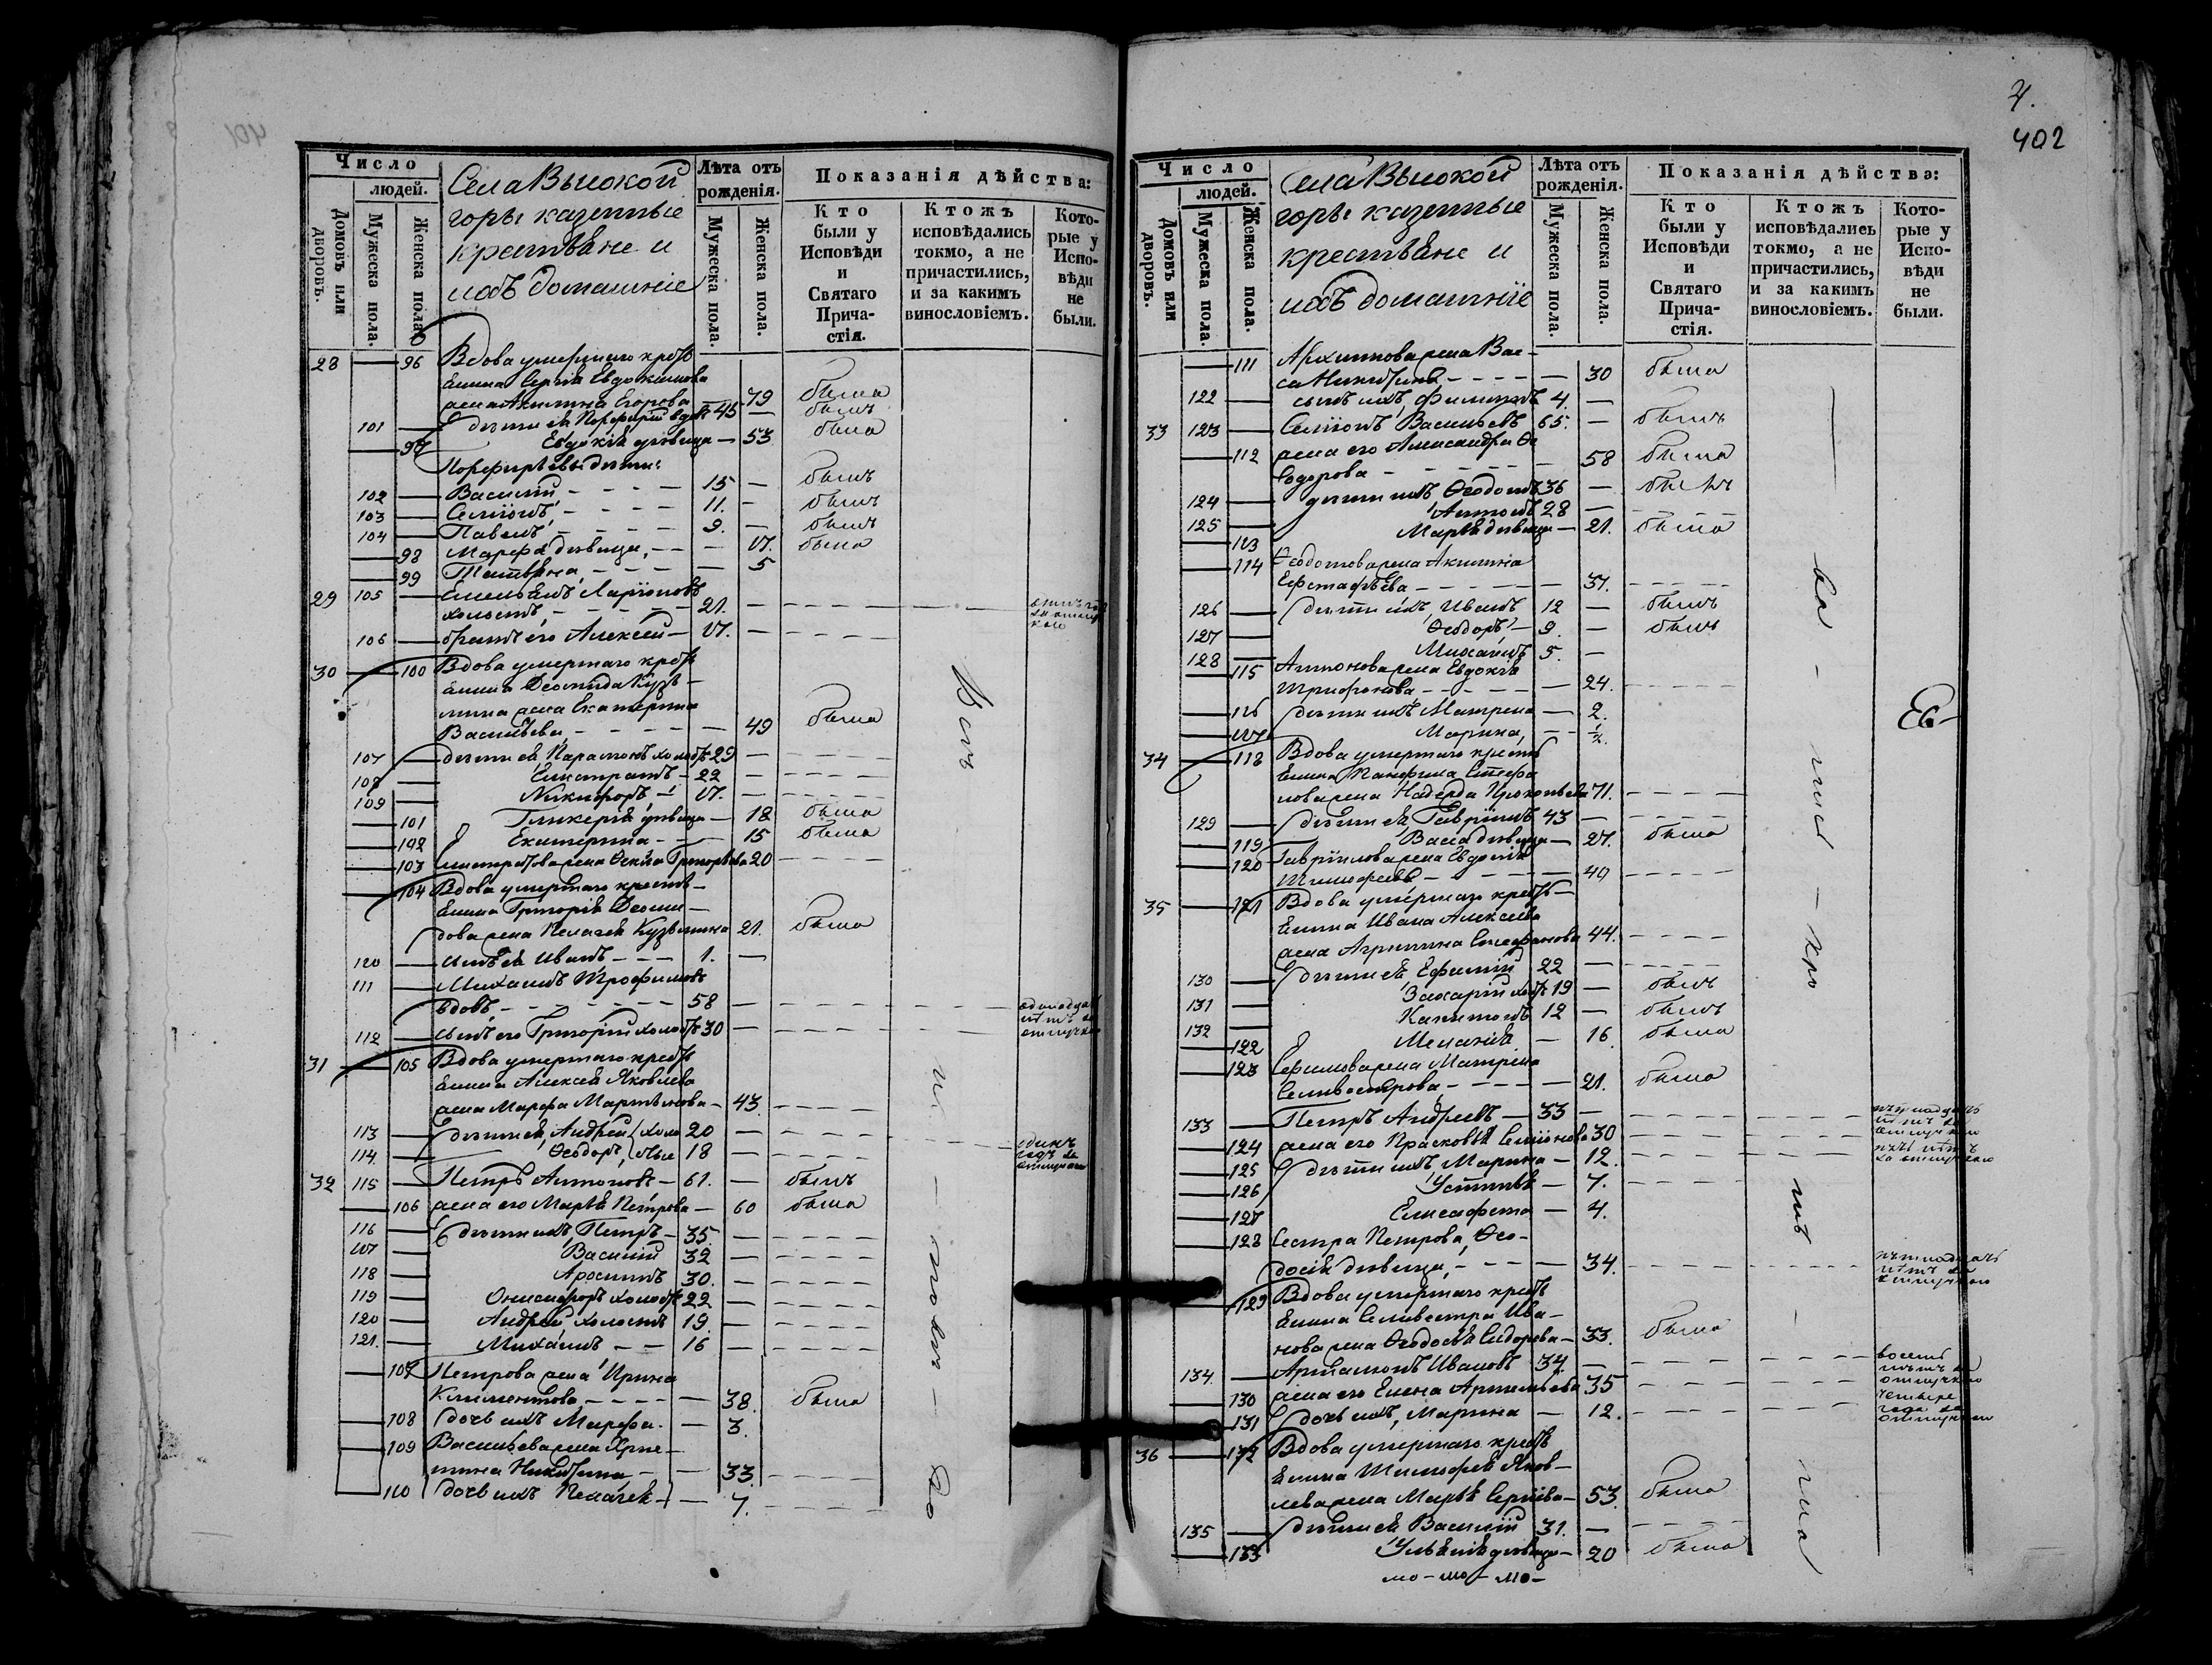 Число
людей.
Домовъ или дворовъ.
Мужеска пола.
Женска пола.
Села Высокой
горы казенные
крестьяне и
ихъ домашніе
Лѣта отъ
рожденія.
Мужеска пола.
Женска пола.
Показанія дѣйства:
Кто
были у
Исповѣди
и
Святаго
Прича-
стія.
Ктожъ
исповѣдались
токмо, а не
причастились,
и за какимъ
винословіемъ.
Кото-
рые у
Испо-
вѣди
не
были.
28 — 96 Вдова умершаго крест
янина Сергѣя Евдокимова
жена Акилина Егорова — 79 была
101 — дѣти ея Порфирій вдовъ 45 — былъ
— 97 Евдокія дѣвица — 53 была
Порфирьевы дѣти:
102 — Василій, - - - - 15 — былъ
103 — Семіонъ, - - - - 11. — былъ
104 — Павелъ, - - - - 9. — былъ
— 98 Марфа дѣвица, - - — 17. была
— 99 Татьяна, - - - - — 5
29 105 — Емельянъ Ларіоновъ
холостъ, - - - - 21. —
106 — братъ его Алексѣй — 17. —
30 — 100 Вдова умершаго крест
янина Деомида Кузь-
мина жена Екатерина
Васильева, - - - - — 49 была
107 — дѣти ея, Парамонъ холостъ 29 —
108 — Елистратъ — 22 —
109 — Никифоръ, — 17. —
— 101 Гликерія дѣвица — 18 была
— 102 Екатерина - - — 15 была
— 103 Елистратова жена Ѳекла Григорьева 20
— 104 Вдова умершаго крестъ-
янина Григорія Деоми-
дова жена Пелагея Кузьмина 21. была
120 — сынъ ея Иванъ - - - 1. —
111 — Михаилъ Трофимовъ
вдовъ, - - - - - - 58 —
112 — сынъ его Григорій холостъ 30 —
31 — 105 Вдова умершаго крест
янина Алексѣя Яковлева
жена Марфа Мартынова — 43.
113 — дѣти ея, Андрей холо 20 —
114. — Ѳеодоръ, стые 18 —
одинъ
годъ за
отлучкою
32 115 — Петръ Антоновъ — 61. — былъ
— 106 жена его Марья Петрова — 60 была
116 — дѣти ихъ, Петръ — 35. —
117 — Василій 32 —
118 — 30. —
119 — Онисифоръ холостъ 22 —
120 — Андрей холостъ 19. —
121. — Михаилъ - - 16 —
— 107 Петрова жена Ирина
Климентова, - - - - — 38. была
— 108 дочь ихъ Марфа. — 3.
— 109 Васильева жена Хрис-
тина Никитина, - — 33.
— 110 дочь ихъ Пелагея — 7.
4.
402
Число
людей.
Домовъ или дворовъ.
Мужеска пола.
Женска пола.
Села Высокой
горы казенные
крестьяне и
ихъ домашніе
Лѣта отъ
рожденія.
Мужеска пола.
Женска пола.
Показанія дѣйства:
Кто
были у
Исповѣди
и
Святаго
Прича-
стія.
Ктожъ
исповѣдались
токмо, а не
причастились,
и за какимъ
винословіемъ.
Кото-
рые у
Испо-
вѣди
не
были.
— 111 Архипова жена Вас-
са Никитина - - - - — 30 была
122 — сынъ ихъ, Филиппъ 4. —
33 123 — Семіонъ Васильевъ 65. — былъ
— 112 жена его Александра Ѳе
odорова - - - - - — 58 была
124 — дѣти ихъ, Ѳеодотъ 36 — былъ
125 — Антонъ 28 —
— 113 Марья дѣвица — 21. была
— 114 Ѳеодотова жена Акилина
Ефстафьева, - - - - — 37.
126 — дѣти ихъ, Иванъ 12 — былъ
127 — Ѳеодоръ, — 9. — былъ
128 — Михаилъ 5. —
— 115 Антонова жена Евдокія
Трифонова, - - - - — 24.
— 116 дѣти ихъ Матрена — 2.
— 117 Марина, — 1/2.
34 — 118 Вдова умершаго крестъ
янина Панфила Стефа
нова жена Надежда Прокопьева 71.
129 — дѣти ея Гавріилъ 43 —
— 119 Васса дѣвица — 27. была
— 120 Гавріилова жена Евдокія
Тимофеева - - - - — 40
35 — 121 Вдова умершаго крест-
янина Ивана Алексѣева
жена Агрипина Стефанова 44.
130 — дѣти ея, Ефимій 22 —
131 — Захарій холостъ 19 — былъ
132 — Капитонъ 12 — былъ
— 122 Меланія — 16. была
— 123 Ефимова жена Матрена
Селивестрова, - - - - — 21. была
133 — Петръ Андреевъ — 33 —
— 124 жена его Прасковья Семіонова 30
— 125 дѣти ихъ Марина — 12.
— 126 Устинья — 7.
— 127 Елисафета — 4.
— 128 Сестра Петрова, Ѳео-
досія дѣвица, - - - — 34.
— 129 Вдова умершаго крестъ
янина Селивестра Ива-
нова жена Ѳеодосья Сидорова — 33. была
134. — Артамонъ Ивановъ 34. —
восемь
лѣтъ за
отлучкою
— 130 жена его Елена Артемьева 35
четыре
года за
отлучкою
— 131 дочь ихъ, Марина — 12.
36 — 132 Вдова умершаго крестъ
янина Тимофея Яков-
лева жена Марья Сергѣева — 53. была
135 — дѣти ея Василій 31. —
— 133 Ульянія дѣвица — 20 была